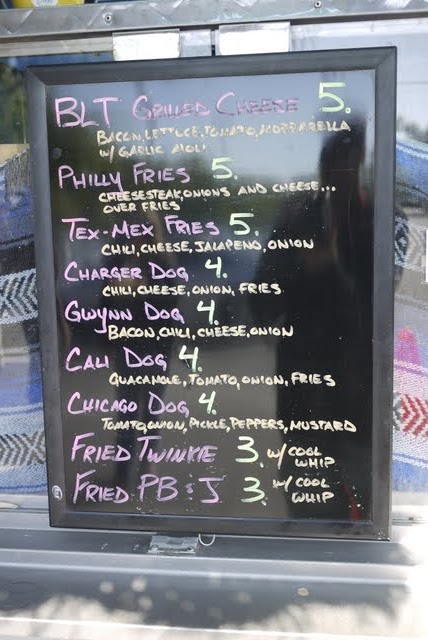 BLT GRILLED CHEESE 5.
BACON, LETTUCE, TOMATO, MOZZARELLA
W/ GARLIC AIOLI
PHILLY FRIES 5.
CHEESESTEAK, ONIONS AND CHEESE...
OVER FRIES
TEX-MEX FRIES 5.
CHILI, CHEESE, JALAPENO, ONION
CHARGER DOG 4.
CHILI, CHEESE, ONION, FRIES
GWYNN DOG 4.
BACON, CHILI, CHEESE, ONION
CALI DOG 4.
GUACAMOLE, TOMATO, ONION, FRIES
CHICAGO DOG 4.
TOMATO, ONION, PICKLE, PEPPERS, MUSTARD
FRIED TWINKIE 3. W/ COOL
WHIP
FRIED PB & J 3. W/ COOL
WHIP